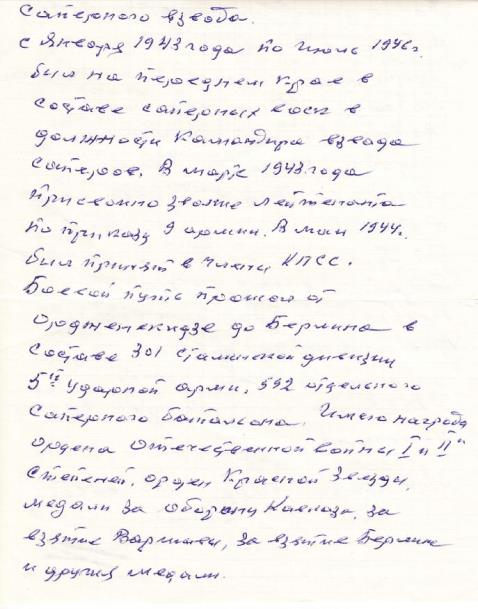 саперного взвода.
с Января 1943 года по Июль 1946 г.
был на переднем крае в
составе саперных войск в
должности командира взвода
саперов. В марте 1943 года
присвоено звание лейтенанта
по приказу 9 армии. В мае 1944 г.
был принят в члены КПСС.
Боевой путь прошол от
Орджоникидзе до Берлина в
составе 301 сталинской дивизии
5ой ударной арми, 592 отдельного
саперного батальона. Имею награды
ордена Отечественной войны I и II й
степеней, орден Красной Звезды,
медали за оборону Кавказа, за
взятие Варшавы, за взятие Берлина
и другие медали.